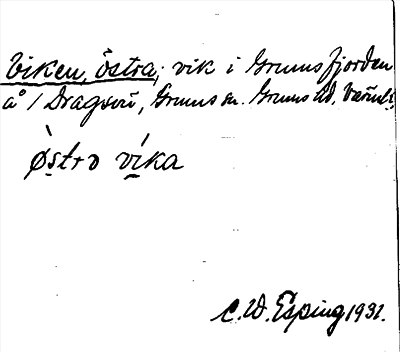 Viken, Östra; vik i Grumsfjorden
å / Dragsvi, Grums sn. Grums hd. Värml.
østrɔ vika
C. W. Esping 1931.